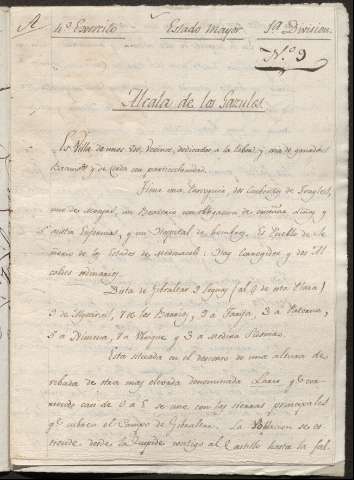 A 4º Exercito Estado Mayor 1ª Division
Nº 9
Alcala de los Gazules
Es Villa de unos vecinos, dedicados a la labor y cria de ganado
y de Cerda con particularidad.
Tiene una Parroquia, dos Conventos de Frayles,
uno de Monjas, un Beaterio con obligacion de enseñar niñas y
asistir Enfermas, y un Hospital de hombres. El Pueblo es de
de los Estados de Medinaceli: Hay Corregidor y dos Al
caldes ordinarios.
Dista de Gibraltar 9 leguas
de 7 a los Barrios, 9 a Tarifa, 3 a Paterna,
5 a Ximena, 7 a Ubrique y 3 a Medina Sidonia.
Esta situada en el descenso de una altura de
rebada de otra mas elevada denominada Lario, que co
rriendo casi de a E se une con las sierras principales
que cubren el Campo de Gibraltar. La Poblacion se es
tiende desde la Cuspide contigo al Castillo hasta la fal